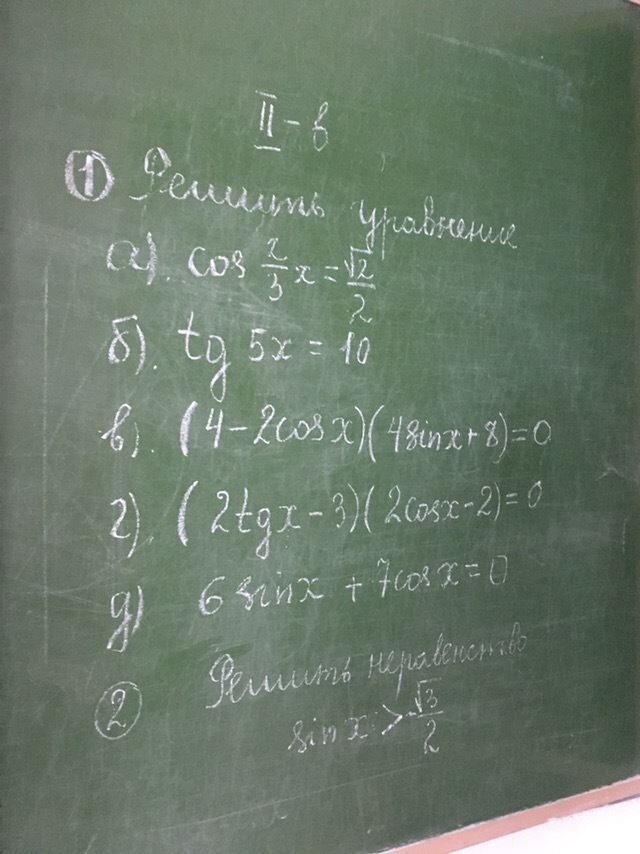 II - в
① Решить уравнение
а). cos 2/3 x = √2/2
б). tg 5x = 10
в). (4 - 2cosx)(4sinx + 8) = 0
г). (2tgx - 3)(2cosx - 2) = 0
д) 6sinx + 7cosx = 0
② Решить неравенство
sinx > -√3/2